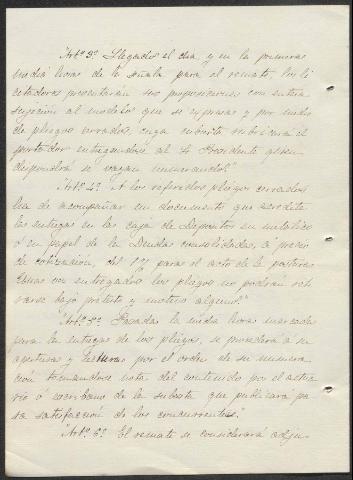 "Art.º 3.º Llegado el dia, y en la primera
media hora de la señala para el remate, los li
citadores presentarán sus proposiciones con entera
sujecion al modelo que se expresa y por medio
de pliegos cerrados, cuya cubierta rubricará el
portador entregandolos al Sr Presidente quien
dispondrá se vayan numerando."
"Art.º 4.º A los referidos pliegos cerrados
ha de acompañar un documento que acredite
la entrega en la caja de Depositos en metálico
ó en papel de la Deuda consolidada, á precio
de cotizacion, del para el acto de la postura
Una vez entregados los pliegos no podrán reti
rarse bajo pretesto y motivo alguno."
"Art.º 5.º Pasada la media hora marcada
para la entrega de los pliegos, se procederá a su
apertura y lectura por el orden de su numera
ción tomandose nota del contenido por el actua
rio ó escribano de la subasta que publicará pa
ra satisfacción de los concurrentes."
"Art.º 6.º El remate se considerará adju-